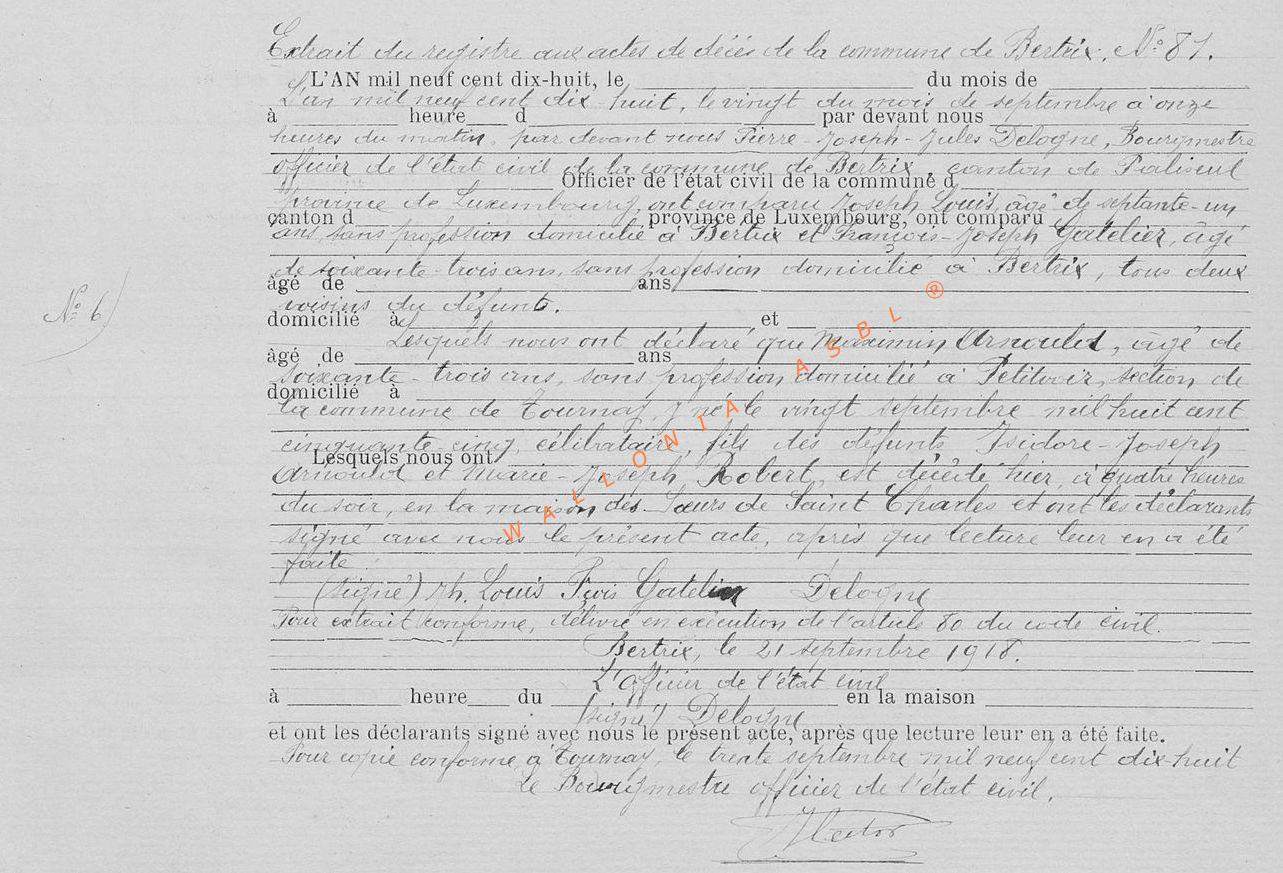 Extrait du registre aux actes de décés de la commune de Bertrix. N° 81.
L'AN mil neuf cent dix-huit, le du mois de
L'an mil neuf cent dix-huit, le vingt du mois de septembre à onze
à heure d par devant nous
heures du matin, par devant nous Pierre-Joseph-Jules Delogne, Bourgmestre
officier de l'état civil de la commune de Bertrix, canton de Paliseul
Officier de l'état civil de la commune d
province de Luxembourg, ont comparu Joseph Louis, âgé de septante-un
canton d province de Luxembourg, ont comparu
ans, sans profession domicilié à Bertrix et François-Joseph Gatelier, âgé
de soixante-trois ans, sans profession domicilié à Bertrix, tous deux
âgé de ans
N° 6
voisins du défunt.
domicilié à et
Lesquels nous ont déclaré que Maximin Arnould, âgé de
âgé de ans
soixante-trois ans, sans profession domicilié à Petitvoir, section de
domicilié à
la commune de Tournay, né le vingt septembre mil huit cent
cinquante cinq, célibataire, fils des défunts Isidore Joseph
Lesquels nous ont
Arnould et Marie-Joseph Robert, est décédé hier, à quatre heures
du soir, en la maison des Sœurs de Saint Charles et ont les déclarants
signé avec nous le présent acte, après que lecture leur en a été
faite.
(signé) Jh. Louis Fçois Gatelier Delogne
Pour extrait conforme, délivré en exécution de l'article 80 du code civil.
Bertrix, le 21 septembre 1918.
L'Officier de l'état civil
à heure du en la maison
(signé) Delogne
et ont les déclarants signé avec nous le présent acte, après que lecture leur en a été faite.
Pour copie conforme, à Tournay, le trente septembre mil neuf cent dix-huit
Le Bourgmestre officier de l'état civil.
WALLONIA ASBL ®